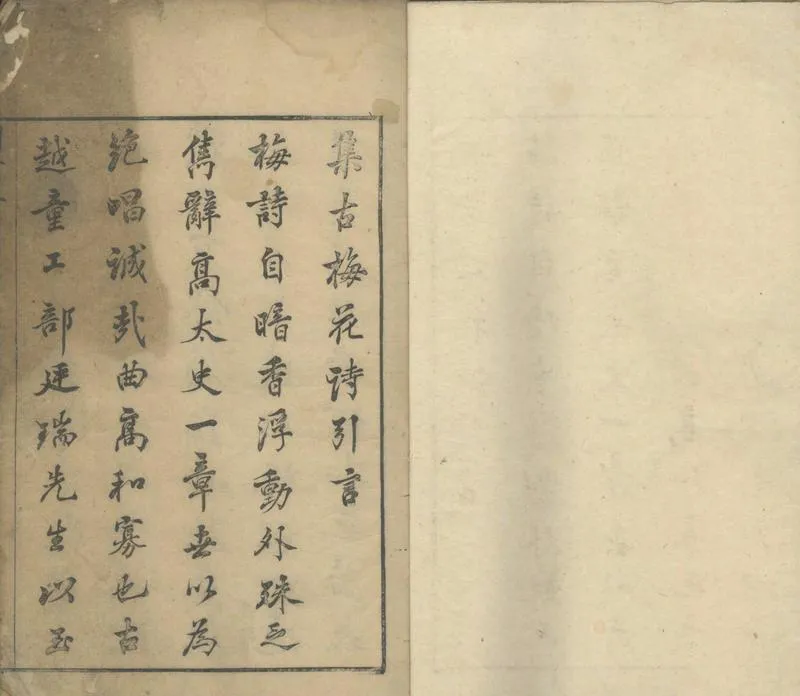 集古梅花诗引言
梅詩自暗香浮動外殊乏
雋辭高太史一章世以為
絕唱誠哉曲高和寡也古
越童工部廷瑞先生以玉